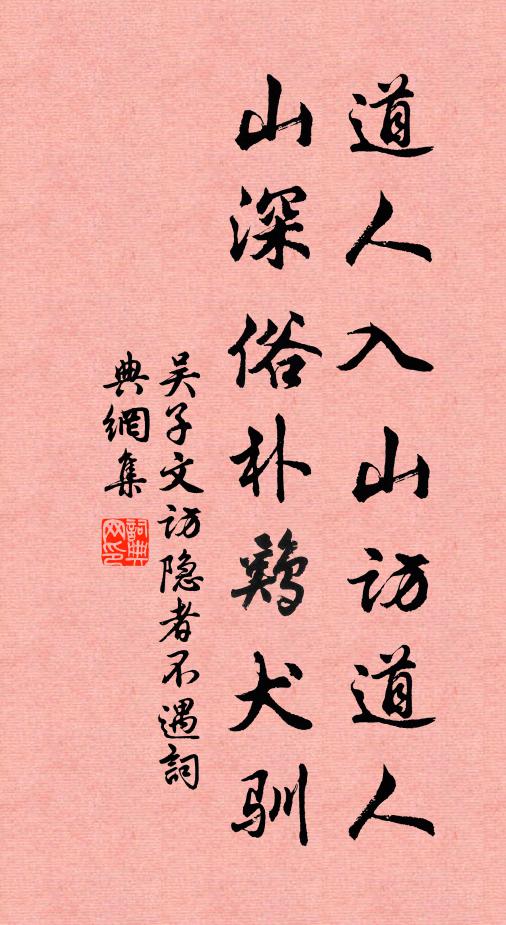 道人入山访道人
山深俗朴鷄犬驯
吴子文访隐者不遇詞
典網集
詞典网印